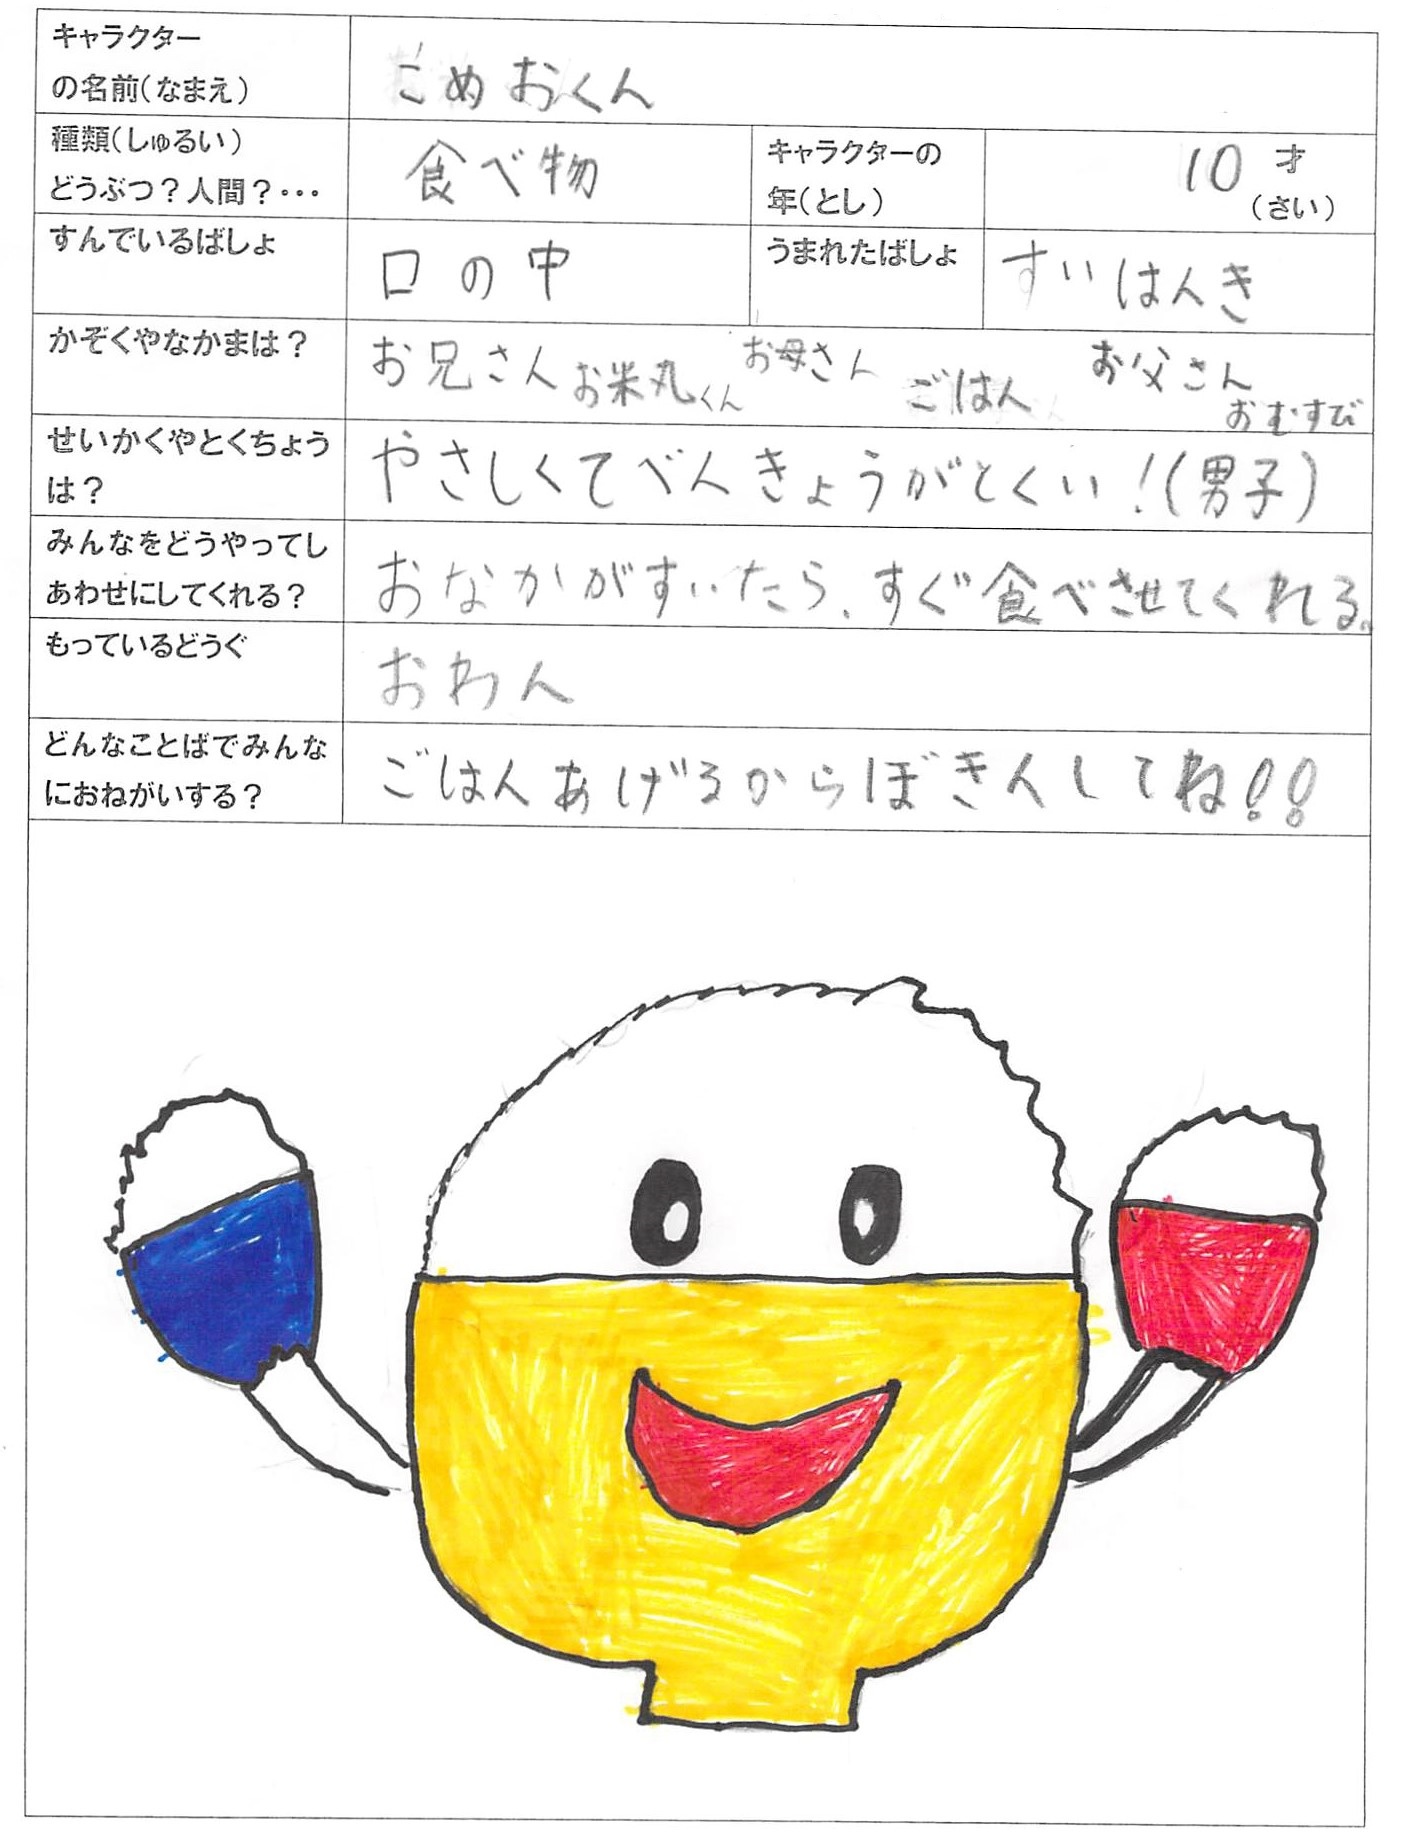 キャラクター
の名前(なまえ)
こめおくん
種類(しゅるい)
どうぶつ?人間?・・・
食べ物
キャラクターの
年(とし)
10 才
(さい)
すんでいるばしょ
口の中
うまれたばしょ
すいはんき
かぞくやなかまは?
お兄さん お米丸くん お母さん ごはん お父さん おむすび
せいかくやとくちょう
は?
やさしくてべんきょうがとくい!(男子)
みんなをどうやってし
あわせにしてくれる?
おなかがすいたら、すぐ食べさせてくれる。
もっているどうぐ
おわん
どんなことばでみんな
におねがいする?
ごはんあげるからぼきんしてね!!